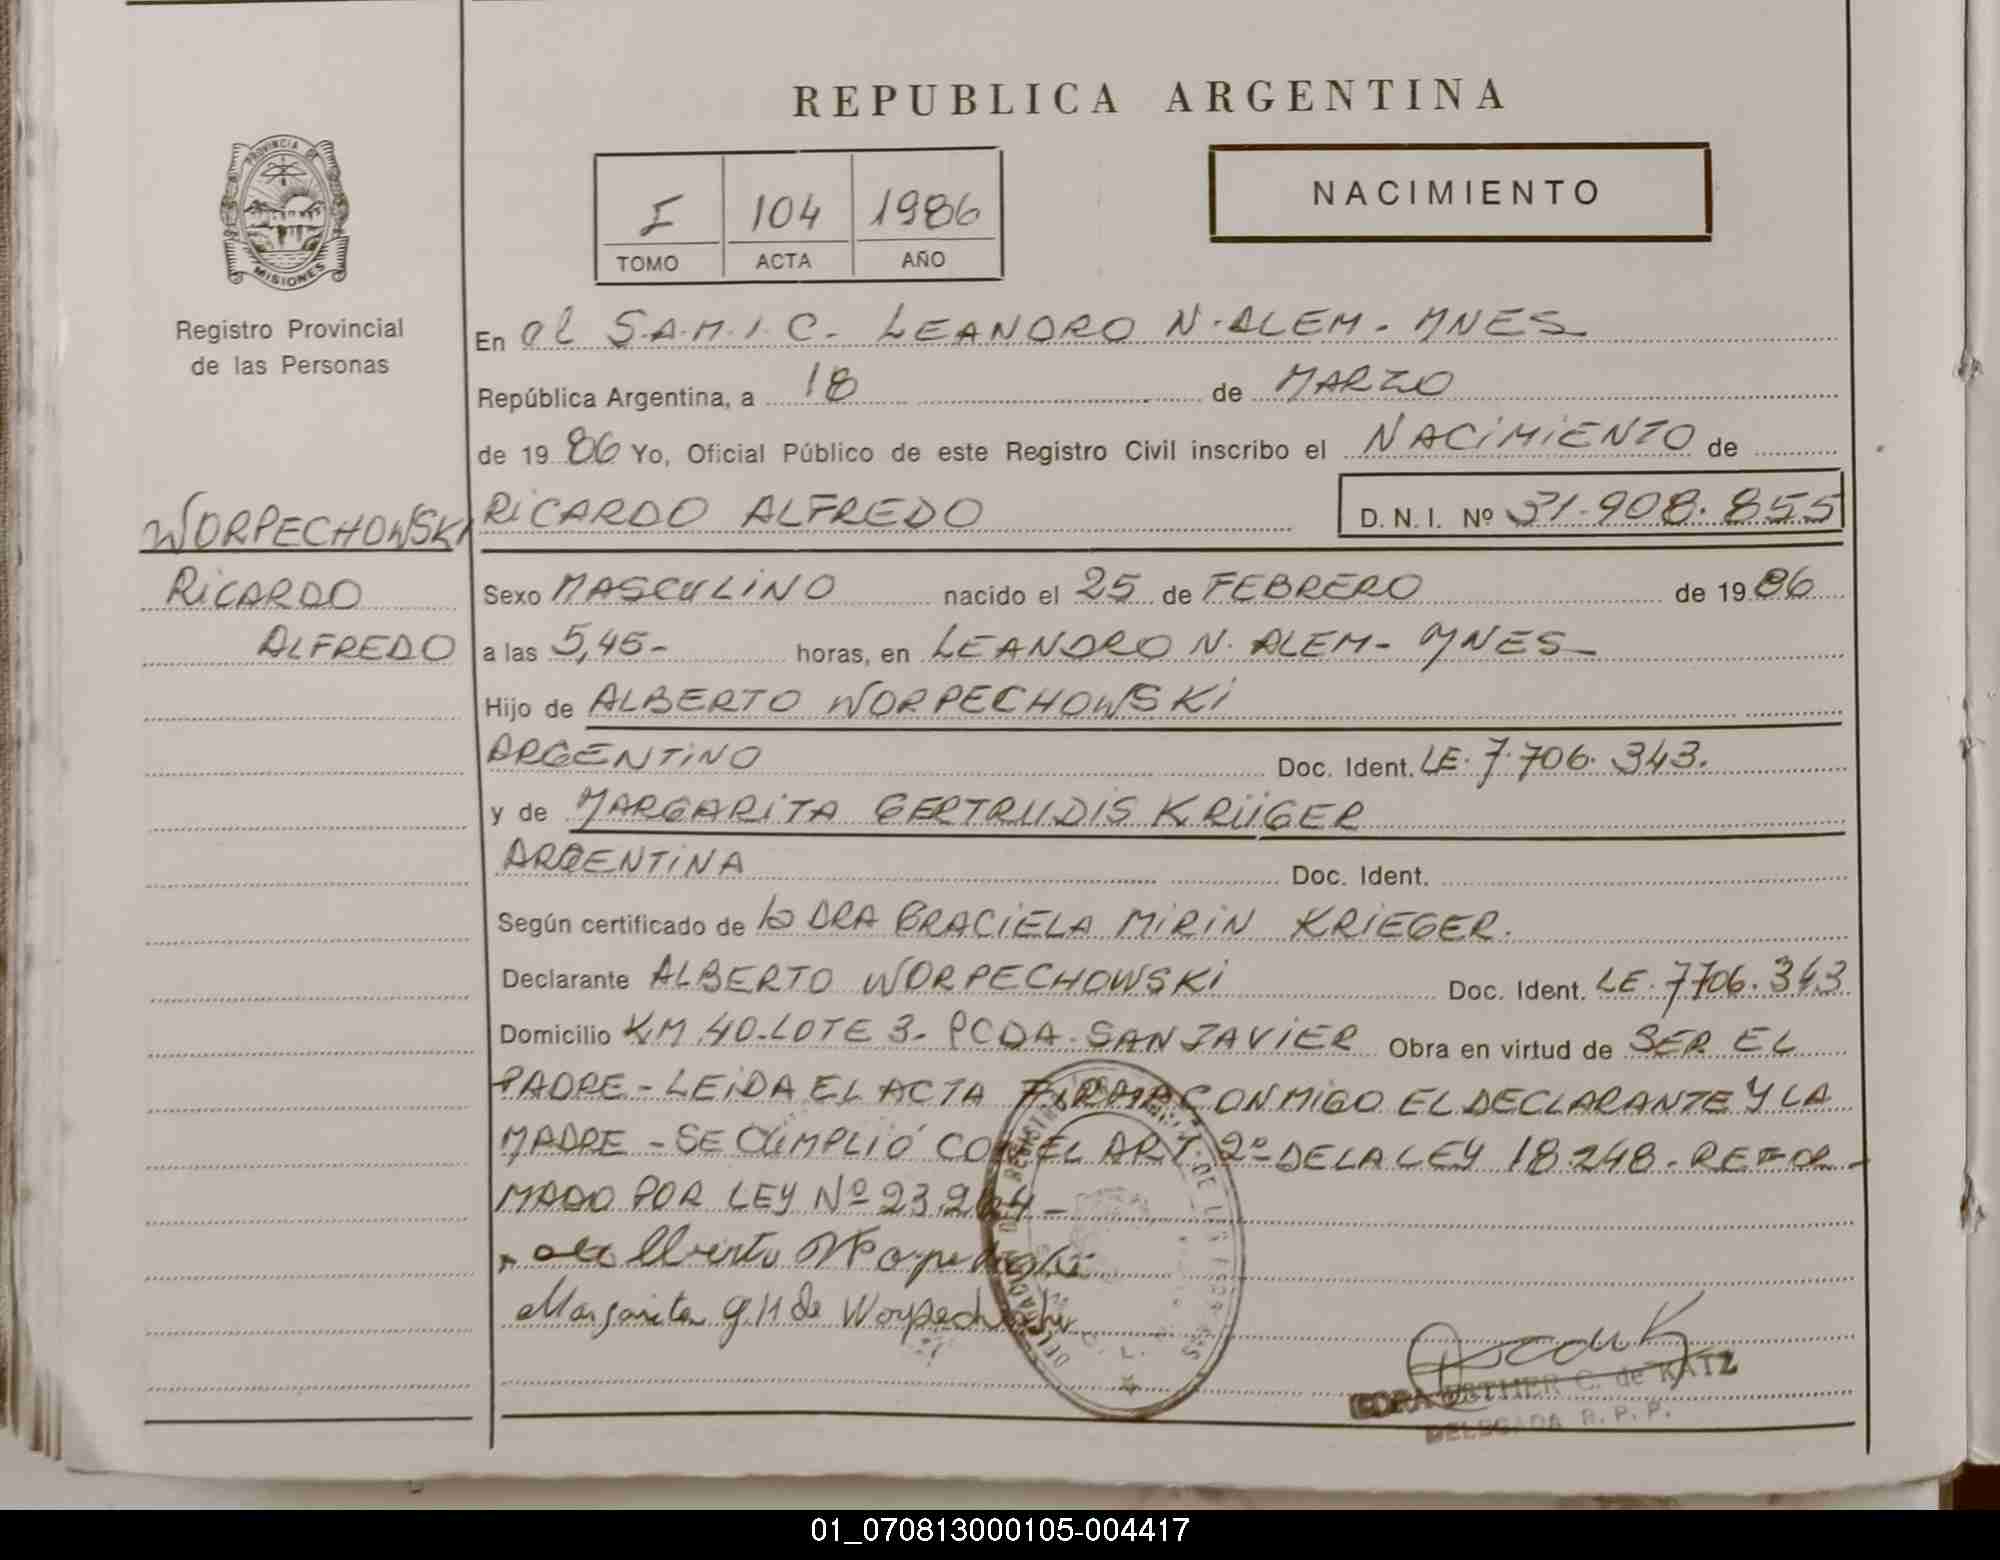 REPUBLICA ARGENTINA
PROVINCIA DE
MISIONES
Registro Provincial
de las Personas
I 104 1986
TOMO ACTA AÑO
NACIMIENTO
En el S.A.M.I.C. LEANDRO N. ALEM - MNES
República Argentina, a 18 de MARZO
de 1986 Yo, Oficial Público de este Registro Civil inscribo el NACIMIENTO de
WORPECHOWSKI
RICARDO
ALFREDO
RICARDO ALFREDO D. N. I. Nº 31.908.855
Sexo MASCULINO nacido el 25 de FEBRERO de 1986
a las 5,45- horas, en LEANDRO N. ALEM - MNES
Hijo de ALBERTO WORPECHOWSKI
ARGENTINO Doc. Ident. LE. 7.706.343.
y de MARGARITA GERTRUDIS KRÜGER
ARGENTINA Doc. Ident.
Según certificado de la DRA GRACIELA MIRIN KRIEGER.
Declarante ALBERTO WORPECHOWSKI Doc. Ident. LE. 7706.343
Domicilio KM 40-LOTE 3- PCDA. SAN JAVIER Obra en virtud de SER EL
PADRE - LEIDA EL ACTA FIRMA CONMIGO EL DECLARANTE Y LA
MADRE - SE CUMPLIÓ CON EL ART. 2º DE LA LEY 18.248. REFOR-
MADO POR LEY Nº 23.264 -
Alberto Worpechoski
Margarita G K de Worpechoski
CORA ESTHER C. de KATZ
DELEGADA R. P. P.
01_070813000105-004417